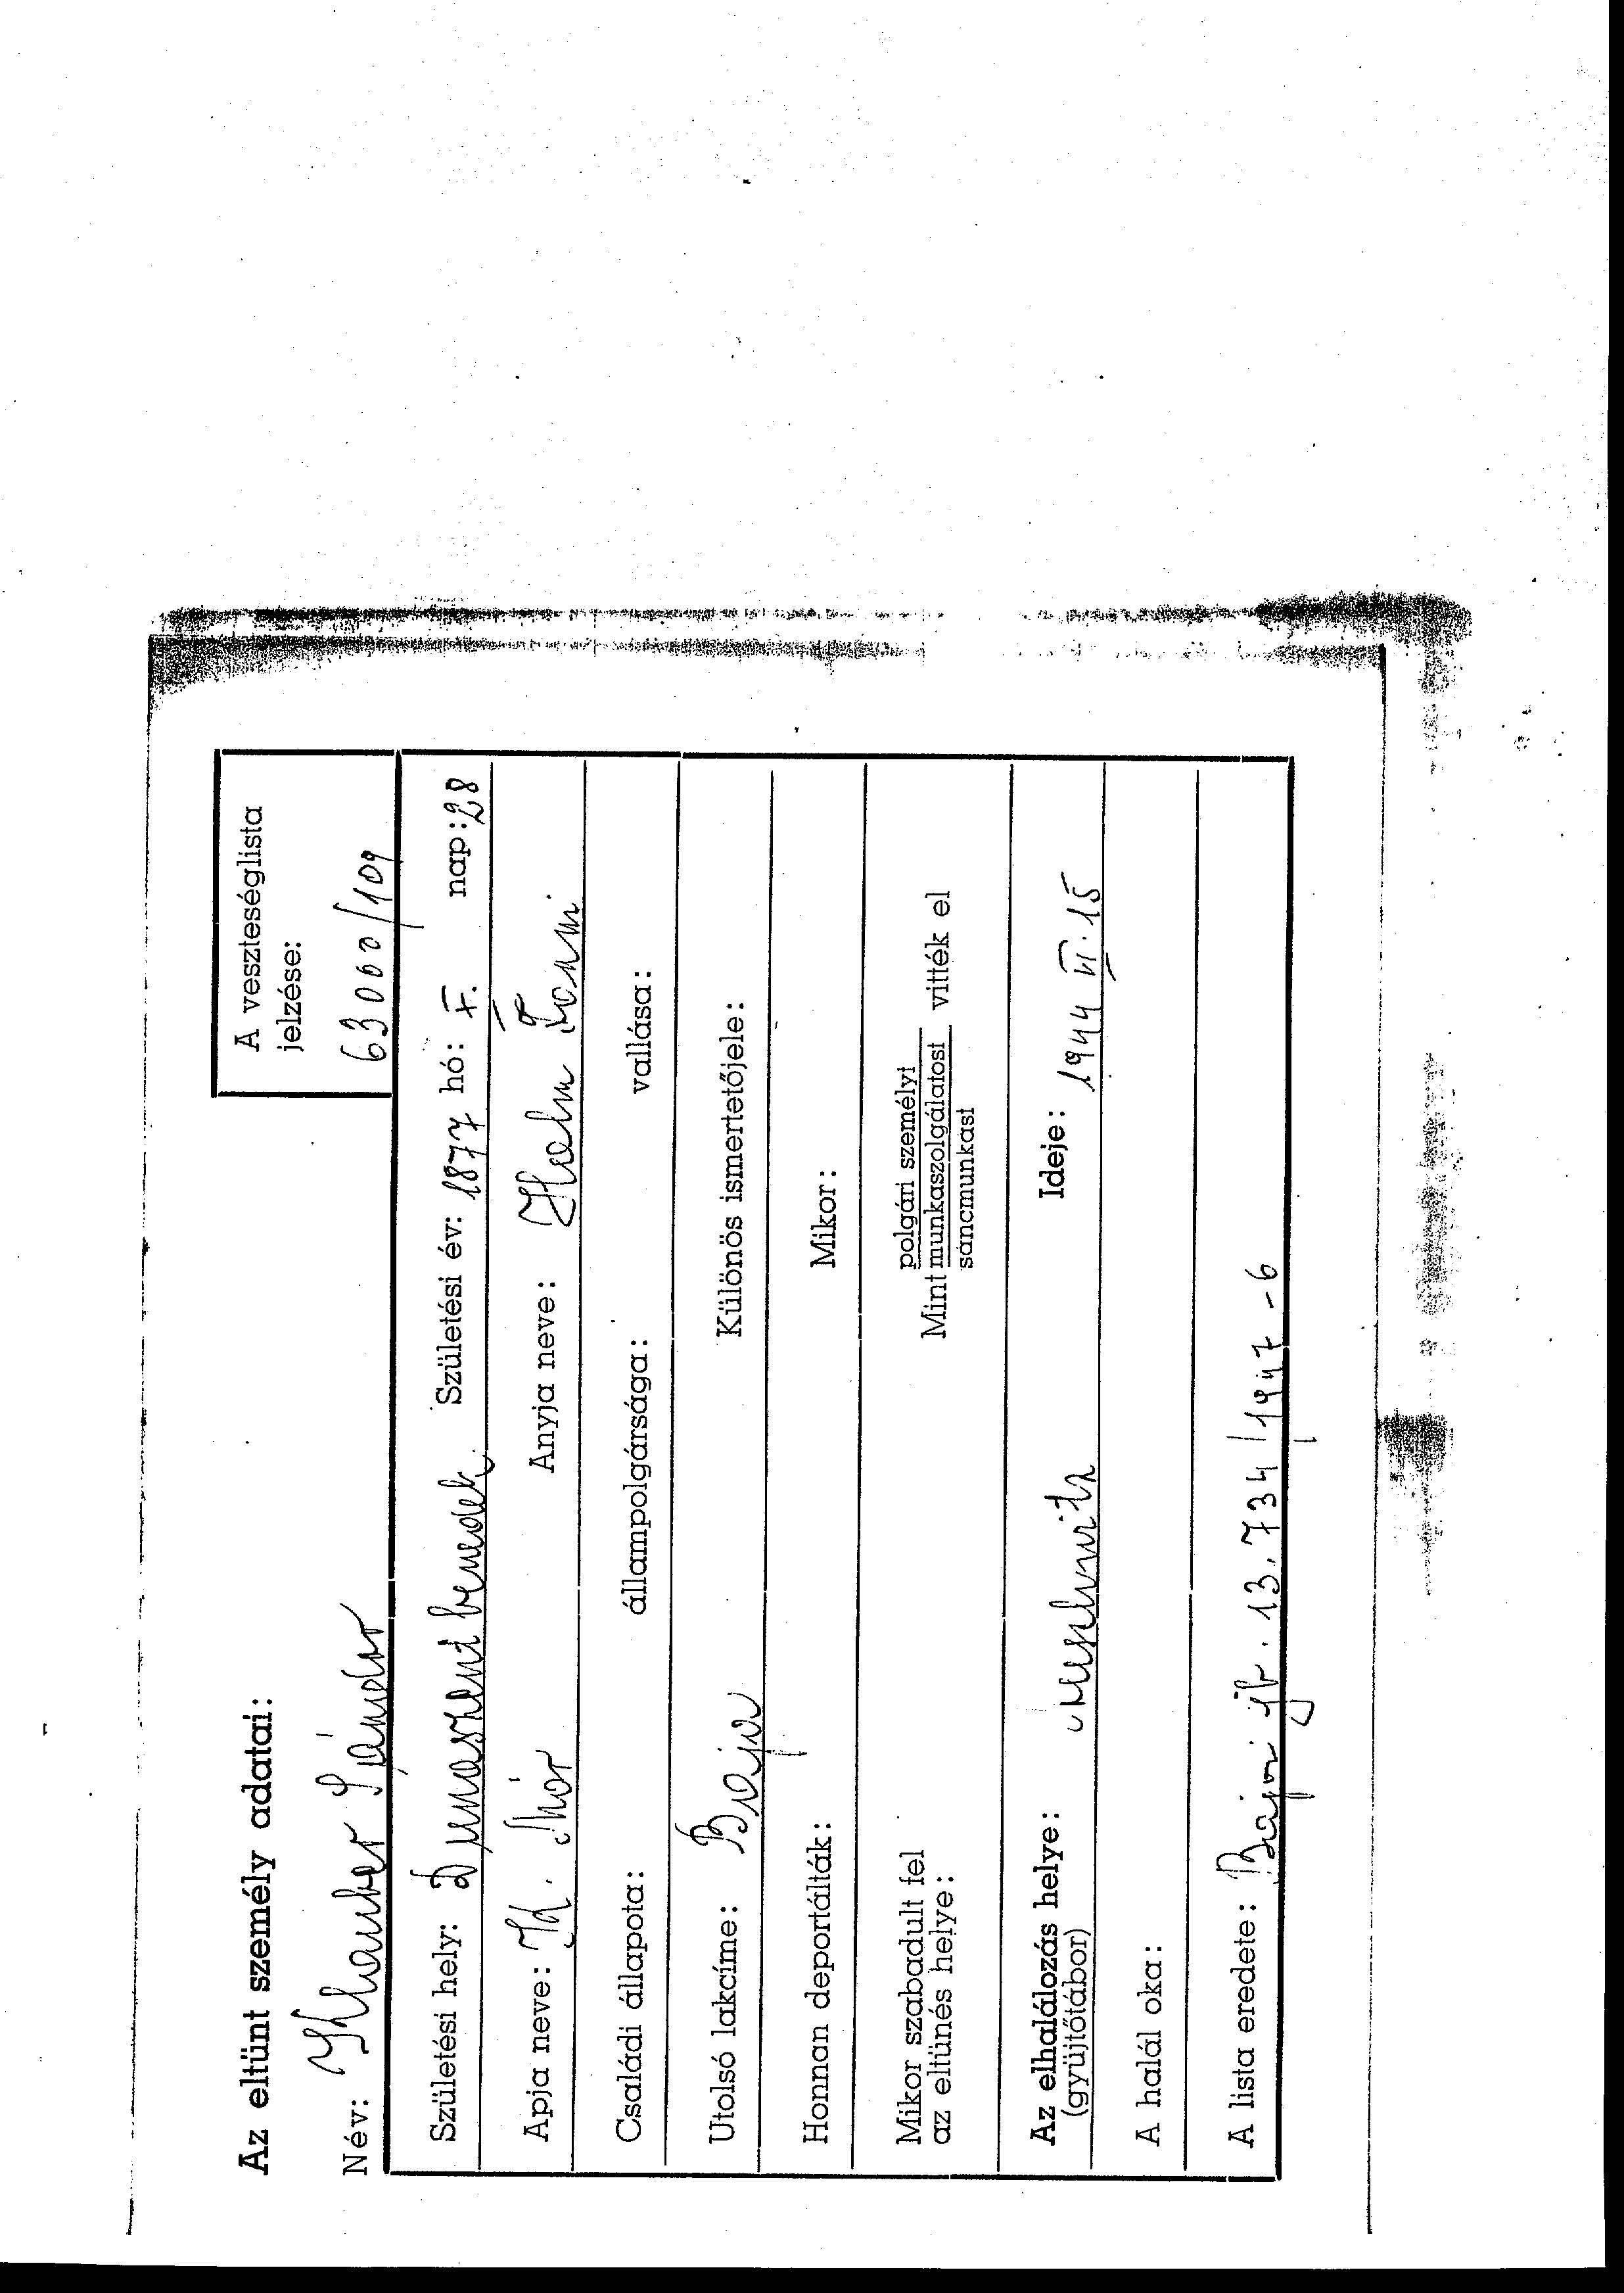 Az eltünt személy adatai:
A veszteséglista
jelzése:
63000/109
Név: Klauber Sándor
Születési hely: Dunaszentbenedek Születési év: 1877 hó: V. nap: 28
Apja neve: Kl. Mór Anyja neve: Hahn Fanni
Családi állapota: állampolgársága: vallása:
Utolsó lakcíme: Baja Különös ismertetőjele:
Honnan deportálták: Mikor:
Mikor szabadult fel
az eltünés helye:
polgári személyt
Mint munkaszolgálatost vitték el
sáncmunkást
Az elhalálozás helye: Auschwitz Ideje: 1944 VI. 15
(gyüjtőtábor)
A halál oka:
A lista eredete: Bajai jb. 13.734/1947-6